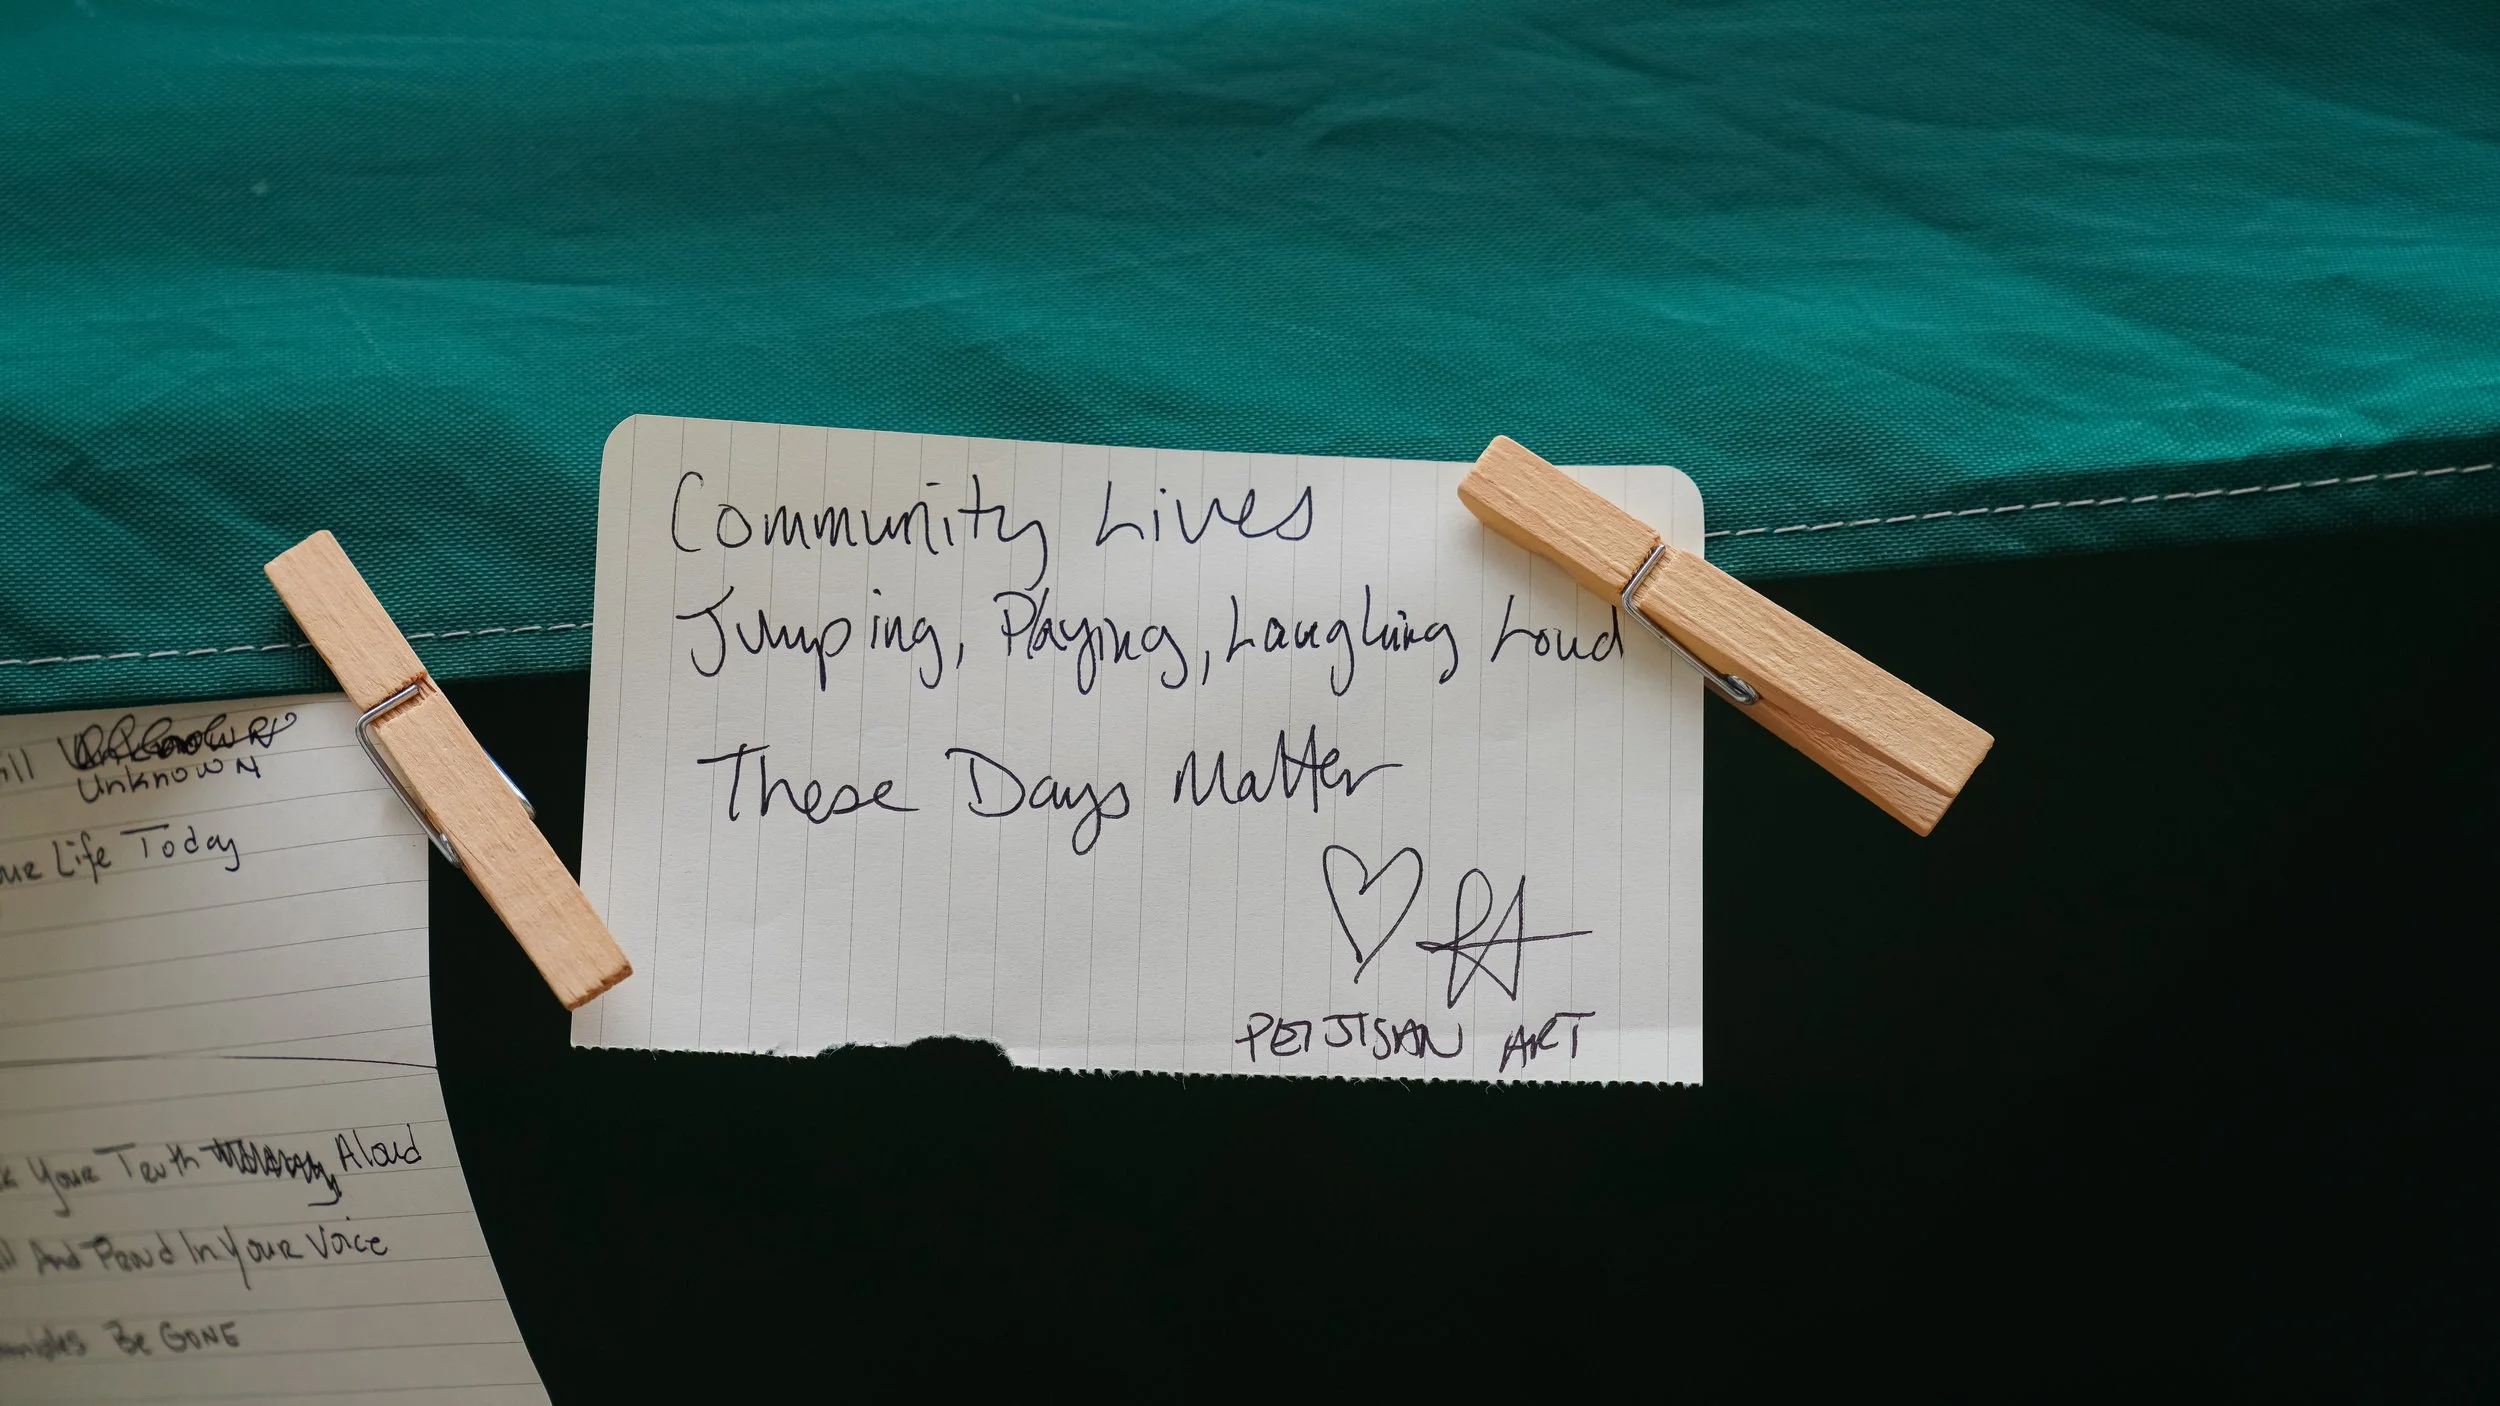 Community Lives
Jumping, Playing, Laughing Loud
These Days Matter
PETJISAN ART
ill
Unknown
Life Today
Your Truth Aloud
And Proud In Your Voice
Be GONE